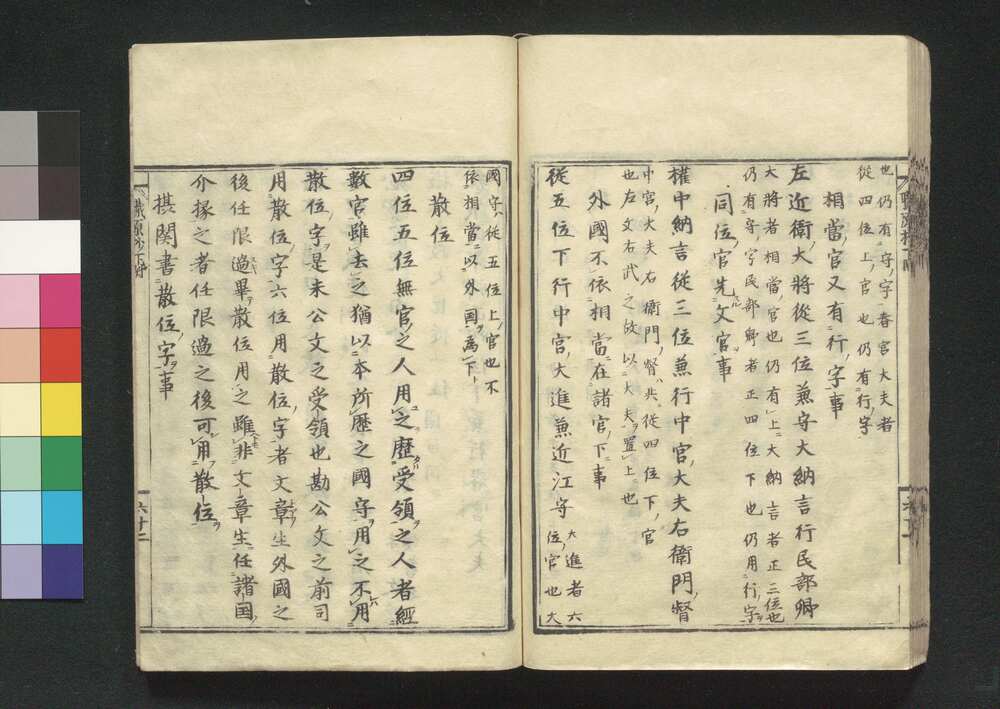 也仍有守字春宮大夫者
從四位上官也仍有行字
相當官又有行字事
左近衛大將從三位兼守大納言行民部卿
大將者相當官也仍有上大納言者正三位也
仍有守字民部卿者正四位下也仍用行字
同位官先文官事
權中納言從三位兼行中宮大夫右衛門督
中宮大夫右衛門督共從四位下官
也右文右武之故以大夫置上也
外國不依相當在諸官下事
從五位下行中宮大進兼近江守
大進者六
位官也大
國守從五位上官也不
依相當以外国為下
散位
四位五位無官之人用之歷受領之人者經
數官雖去之猶以本所歷之國守用之不用
散位字是未公文之受領也勘公文之前司
用散位字六位用散位字者文章生外國之
後任限過畢散位用之雖非文章生任諸国
介掾之者任限過之後可用散位
棋関書散位字事
六十二